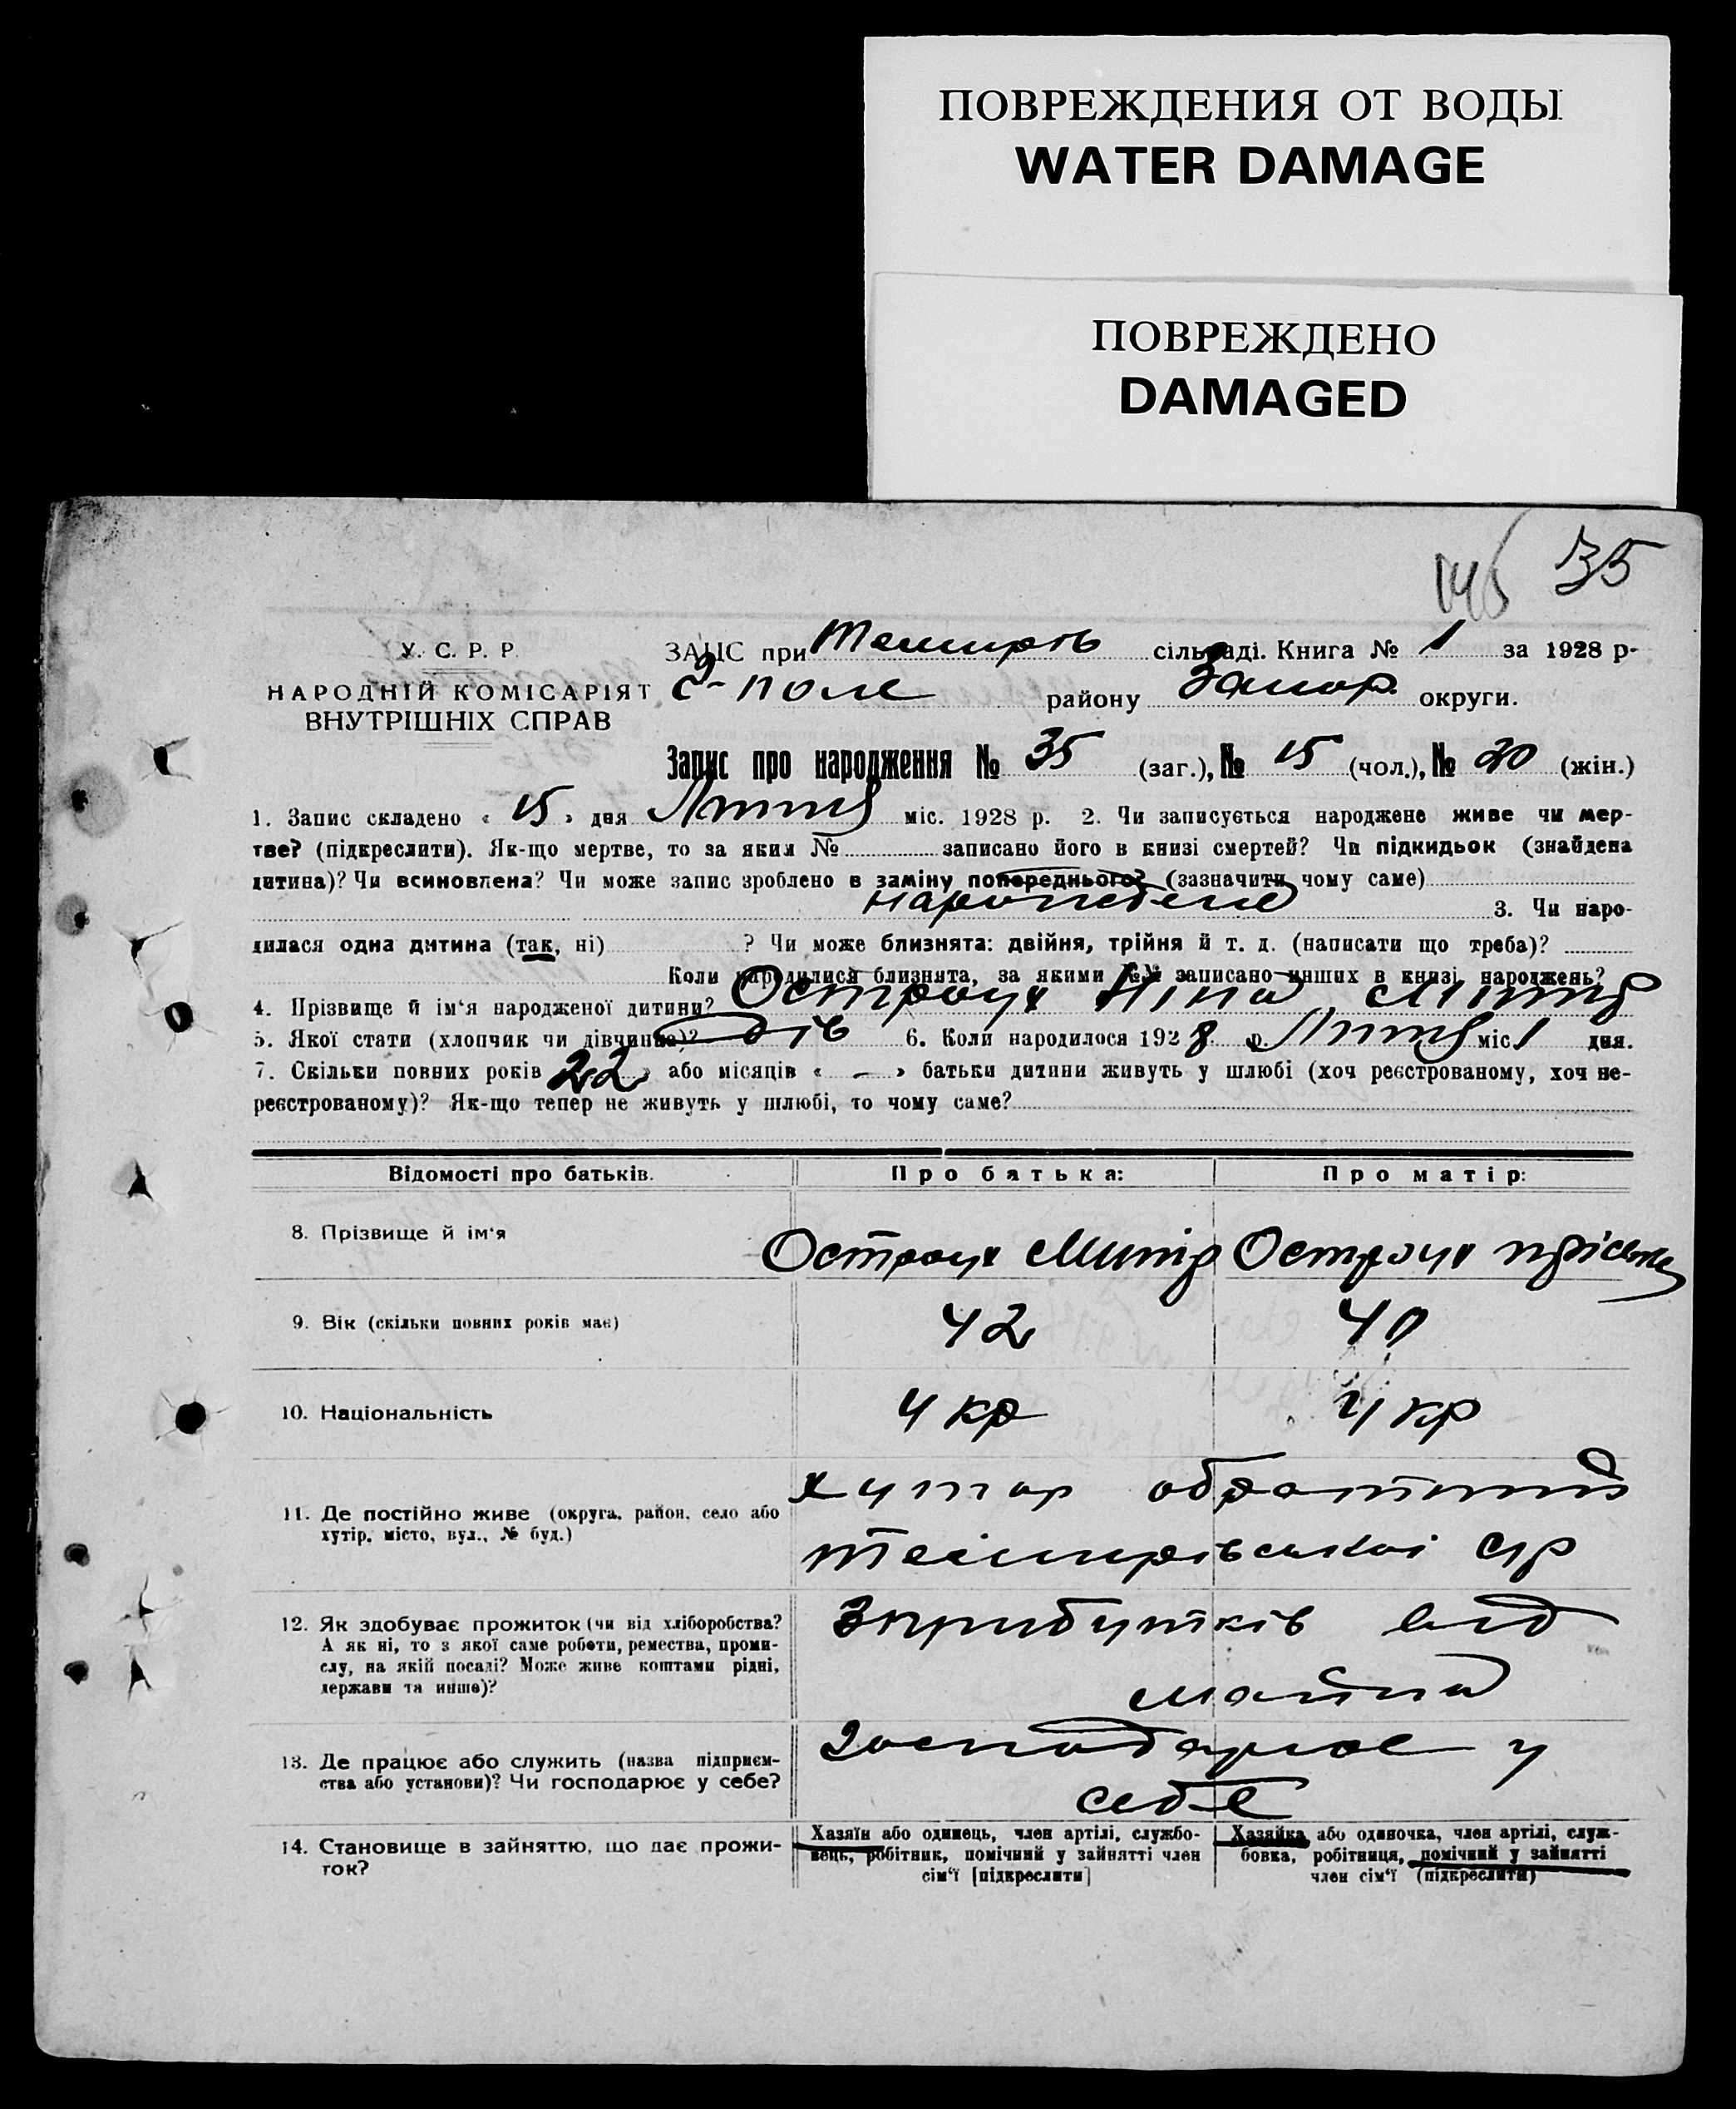 ПОВРЕЖДЕНИЯ ОТ ВОДЫ
WATER DAMAGE
ПОВРЕЖДЕНО
DAMAGED
35
У. С. Р. Р.
НАРОДНІЙ КОМІСАРІЯТ
ВНУТРІШНІХ СПРАВ
ЗАПИС при сільраді. Книга № 1 за 1928 р-
С-поле району Запор. округи.
Запис про народження № 35 (заг.), № 15 (чол.), № 20 (жін.)
1. Запис складено « 15 » дня міс. 1928 р. 2. Чи записується народжене живе чи мер-
тве? (підкреслити). Як-що мертве, то за яким № записано його в книзі смертей? Чи підкидьок (знайдена
дитина)? Чи всиновлена? Чи може запис зроблено в заміну попереднього? (зазначити чому саме)
народжене 3. Чи наро-
дилася одна дитина (так, ні) ? Чи може близнята: двійня, трійня й т. д. (написати що треба)?
Коли народилися близнята, за якими №№ записано инших в книзі народжень?
4. Прізвище й ім‘я народженої дитини? Остроух Ніна
5. Якої статі (хлопчик чи дівчинка)? дів 6. Коли народилося 1928 р. міс. 1 дня.
7. Скільки повних років « 22 » або місяців « — » батьки дитини живуть у шлюбі (хоч реєстрованому, хоч не-
реєстрованому)? Як-що тепер не живуть у шлюбі, то чому саме?
Відомості про батьків. Про батька: Про матір:
8. Прізвище й ім‘я Остроух Митр Остроух
9. Вік (скільки повних років має) 42 40
10. Національність укр укр
11. Де постійно живе (округа, район, село або
хутір, місто, вул., № буд.)
хутор
с/р
12. Як здобуває прожиток (чи від хліборобства?
А як ні, то з якої саме роботи, ремества, проми-
слу, на якій посаді? Може живе коштами рідні,
держави та инше)?
З прибутків від
майна
13. Де працює або служить (назва підприєм-
ства або установи)? Чи господарює у себе?
господарює у
себе
14. Становище в зайняттю, що дає прожи-
ток?
Хазяїн або одинець, член артілі, службо-
вець, робітник, помічний у зайнятті член
сім‘ї [підкреслити]
Хазяйка або одиночка, член артілі, служ-
бовка, робітниця, помічний у зайнятті
член сім‘ї (підкреслити)